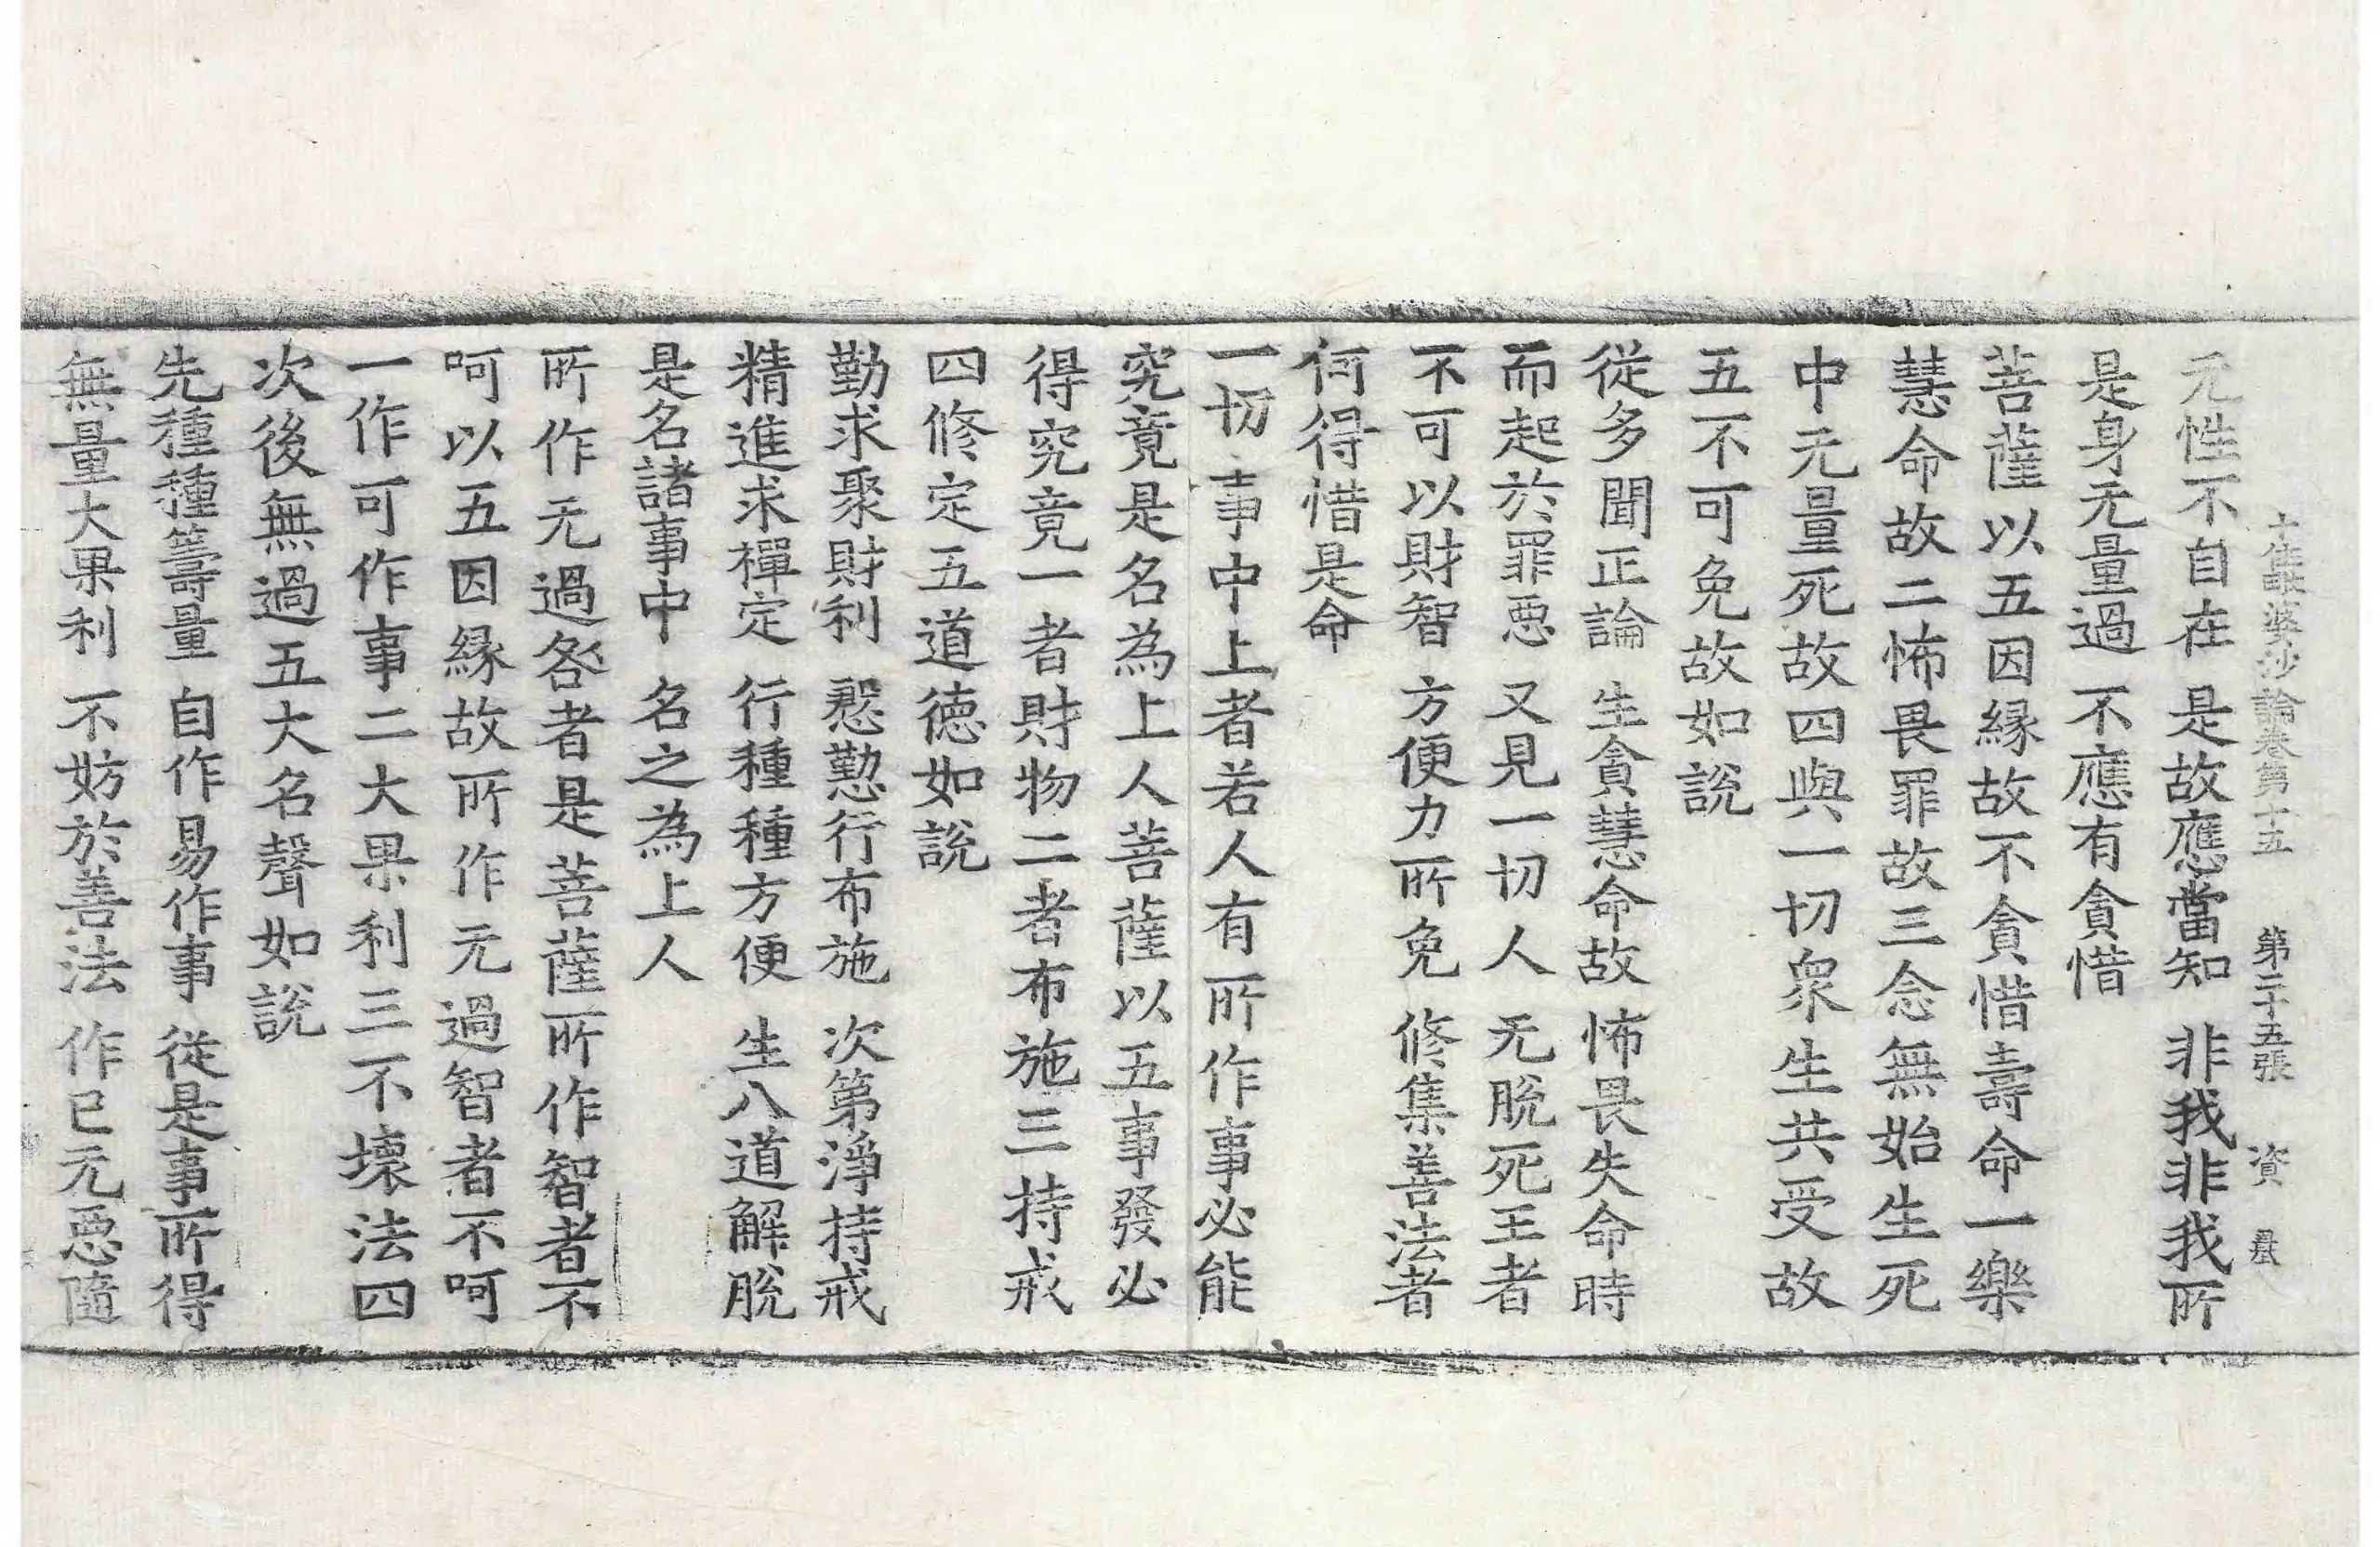 十住毗婆沙論卷第十五 第二十五張 資
无性不自在 是故應當知 非我非我所
是身无量過 不應有貪惜
菩薩以五因縁故不貪惜壽命一樂
慧命故二怖畏罪故三念無始生死
中无量死故四與一切衆生共受故
五不可免故如說
從多聞正論 生貪慧命故 怖畏失命時
而起於罪惡 又見一切人 无脫死王者
不可以財智 方便力所免 修集善法者
何得惜是命
一切事中上者若人有所作事必能
究竟是名為上人菩薩以五事發必
得究竟一者財物二者布施三持戒
四修定五道德如說
勤求聚財利 慇懃行布施 次第淨持戒
精進求禪定 行種種方便 生八道解脫
是名諸事中 名之為上人
所作无過咎者是菩薩所作智者不
呵以五因縁故所作无過智者不呵
一作可作事二大果利三不壞法四
次後無過五大名聲如說
先種種籌量 自作易作事 從是事所得
無量大果利 不妨於善法 作已无惡隨